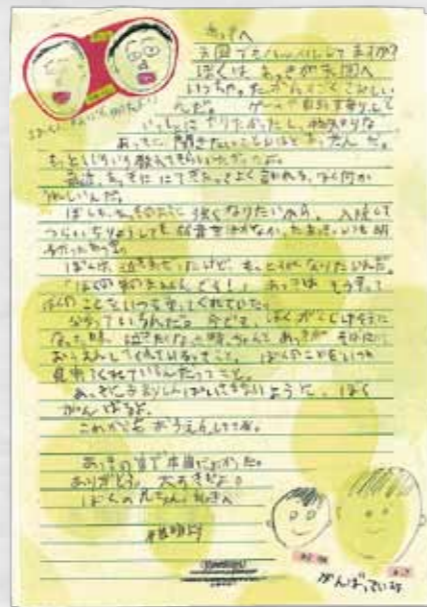 あっきへ
天国で元気にしてますか?
ぼくは あっきが天国へ
いっちゃったから すごくさみしい
んだ。 ゲームや
いっしょに やりたかったし、
あっきに 聞きたいことも ほど あったんだ。
もっといろいろ教えてもらいたかったよ。
最近、あっきに にてきたってよく言われる。 なんか
うれしいんだ。
ぼくも、あっきのように 強くなりたいから、 入院して
つらいちりょうしても 弱音をはかなかったあっき。いつも明
るかったあっき。
ぼくは、泣き虫だったけど、もっと強くなりたいんだ。
「ぼくの弟の です!」 あっきは そう言って
ぼくの ことを いつも守ってくれていた。
今でも、ぼくが くじけそうに
なった時、泣きたくなった時、ちゃんと あっきが そばにいて
おうえんしてくれているってこと。 ぼくのことをいつも
見守てくれているんだってこと。
あっきが 天国で しんぱいしないように、 ぼく
がんばるよ。
これからも おうえんしててね。
あっきの弟で本当によかった。
ありがとう。 大すきだよ。
ぼくの 兄ちゃん、あっきへ
より
がんばっているよ